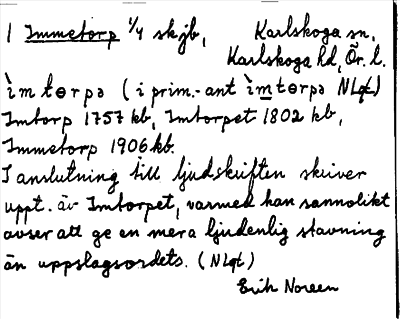 1 Immetorp 1/4 skjb, Karlskoga sn,
Karlskoga hd, Ör. l.
ìmtɵrpə (i prim.-ant ìmtɵrpə NLqt)
Imtorp 1757 kb, Imtorpet 1802 kb,
Immetorp 1906 kb.
I anslutning till ljudskriften skriver
uppt. äv Imtorpet, varmed han sannolikt
avser att ge en mera ljudenlig stavning
än uppslagsordets. (NLqt)
Erik Noreen